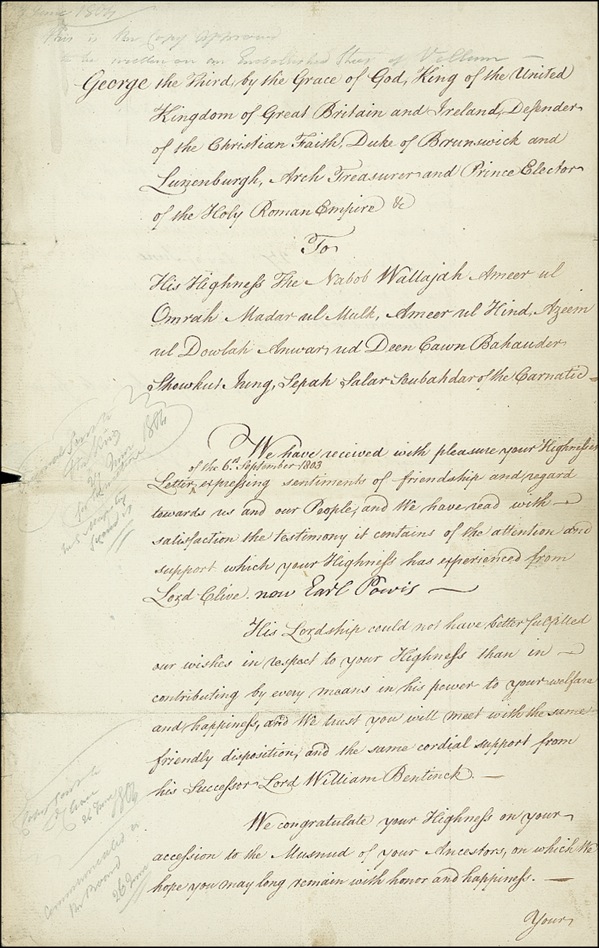 June 1804
This is the Copy approved
to be written on an Embellished Sheet of Vellum
George the Third, by the Grace of God, King of the United
Kingdom of Great Britain and Ireland, Defender
of the Christian Faith, Duke of Brunswick and
Lunenburgh, Arch Treasurer and Prince Elector
of the Holy Roman Empire &c
To
His Highness The Nabob Wallajah Ameer ul
Omrah Madar ul Mulk, Ameer ul Hind, Azeem
ul Dowlah Anwar, ud Deen Cawn Bahauder
Showkut Jung, Sepah Salar Soubahdar of the Carnatic
We have received with pleasure your Highness's
of the 6th September 1803
Letter, expressing sentiments of friendship and regard
towards us and our People, and We have read with
satisfaction the testimony it contains of the attention and
support which your Highness has experienced from
Lord Clive. now Earl Powis
His Lordship could not have better fulfilled
our wishes in respect to your Highness than in
contributing by every means in his power to your welfare
and happiness, and We trust you will meet with the same
friendly disposition, and the same cordial support from
his Successor Lord William Bentinck.
We congratulate your Highness on your
accession to the Musnud of your Ancestors, on which We
hope you may long remain with honor and happiness.
Your
the King
June 1804
26 June 1804
Communicated
26 June